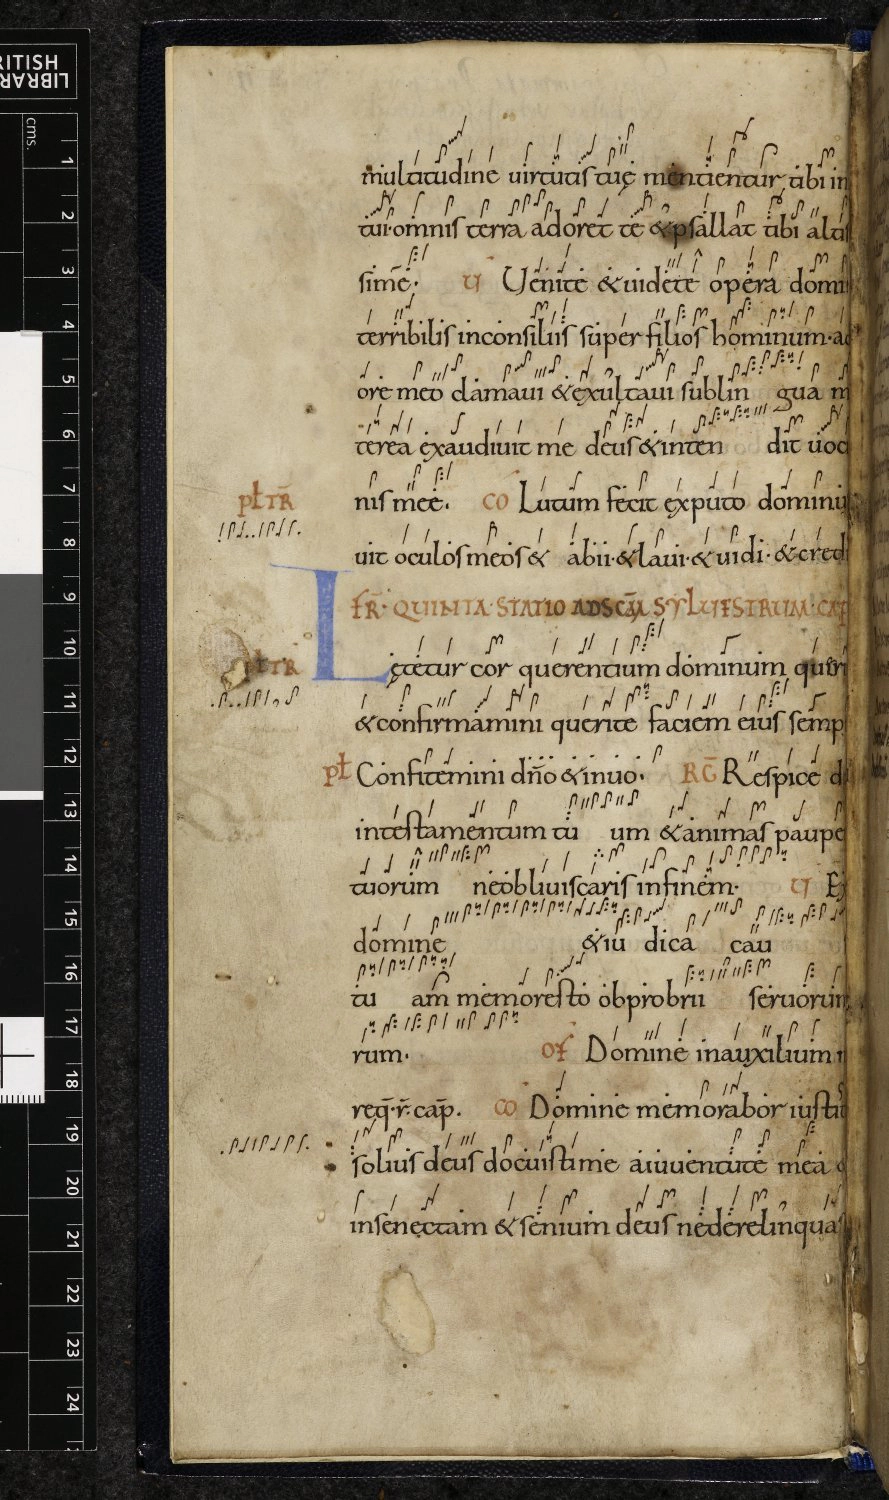 BRITISH LIBRARY
cms.
1 2 3 4 5 6 7 8 9 10 11 12 13 14 15 16 17 18 19 20 21 22 23 24
multitudine uirtutis tuę mentientur tibi in
tui· omnis terra adoret te & psallat tibi altis
sime· V Uenite & uidete opera domi
terribilis inconsiliis super filios hominum· ad
ore meo clamaui & exultaui sublin gua m
terea exaudiuit me deus & inten dit uoc
nis meę· CO Lutum fecit exputo domini
uit oculos meos & abii· & laui· & uidi· & cred
FR̄· QUINTA· STATIO AD SC̄M SYLUESTRUM· CAP
Lętetur cor querentium dominum queri
& confirmamini querite faciem eius semp
ps̄t Confitemini dn̄o & inuo· RG̅ Respice d
in testamentum tu um & animas paupe
tuorum ne obliuiscaris in finem· V E
domine & iu dica cau
tu am memor esto obprobrii seruorum
rum· OF Domine in auxilium m
req̄· r̄· cap̄. CO Domine memorabor iusti
solius deus docuisti me a iuuentute mea &
in senectam & senium deus ne derelinquas